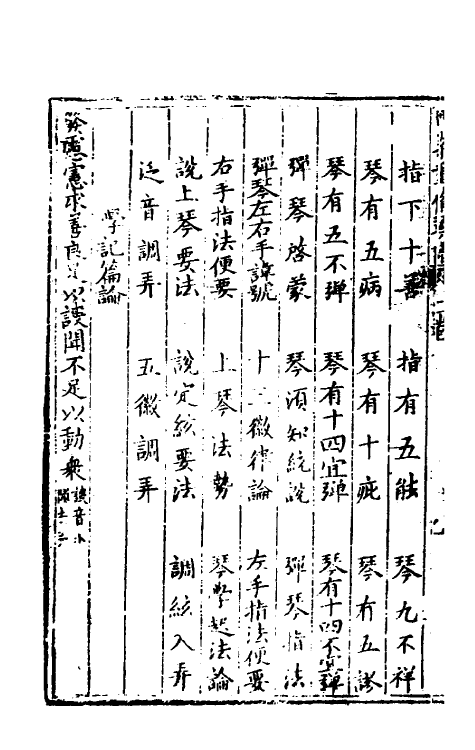 指下十善　指有五能　琴九不祥
琴有五病　琴有十疵　琴有五謬
琴有五不彈　琴有十四宜彈　琴有十四不宜彈
彈琴啓蒙　琴須知統說　彈琴指法
彈琴左右手譜號　十三徽律論　左手指法便要
右手指法便要　上琴法勢　琴學起法論
說上琴要法　說定絃要法　調絃入弄
泛音調弄　五徽調弄
學記篇論
發慮憲求善良足以謏聞不足以動衆